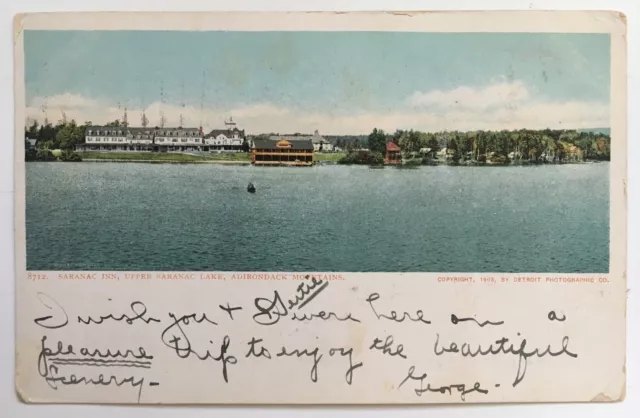 8712. SARANAC INN, UPPER SARANAC LAKE, ADIRONDACK MOUNTAINS.
COPYRIGHT, 1905, BY DETROIT PHOTOGRAPHIC CO.
Gertie
I wish you + Gertie were here on a
pleasure trip to enjoy the beautiful
scenery—
George—